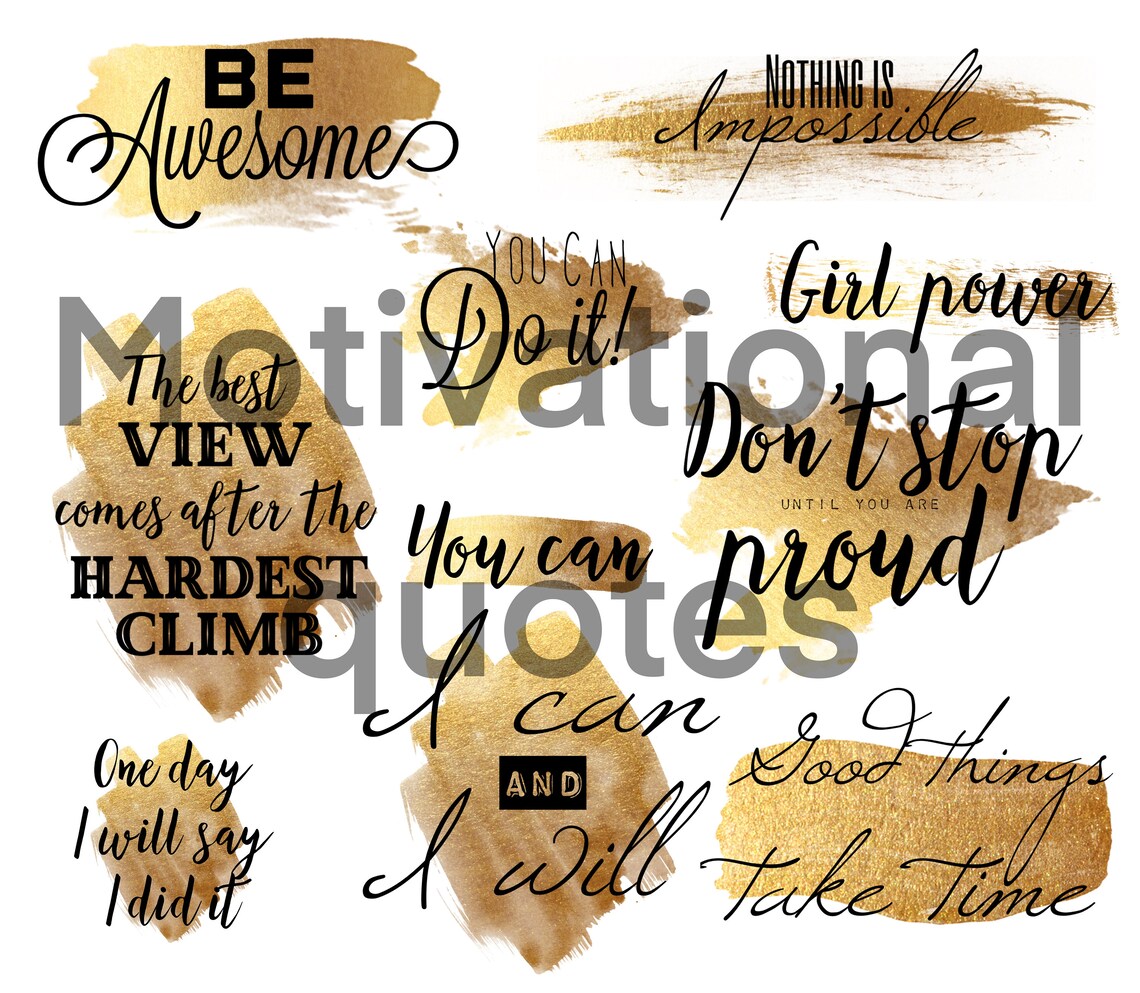 BE
Awesome
NOTHING IS
Impossible
YOU CAN
Do it!
Girl power
Motivational
quotes
The best
VIEW
comes after the
HARDEST
CLIMB
Don't stop
UNTIL YOU ARE
proud
You can
I can
AND
I will
One day
I will say
I did it
Good Things
Take Time